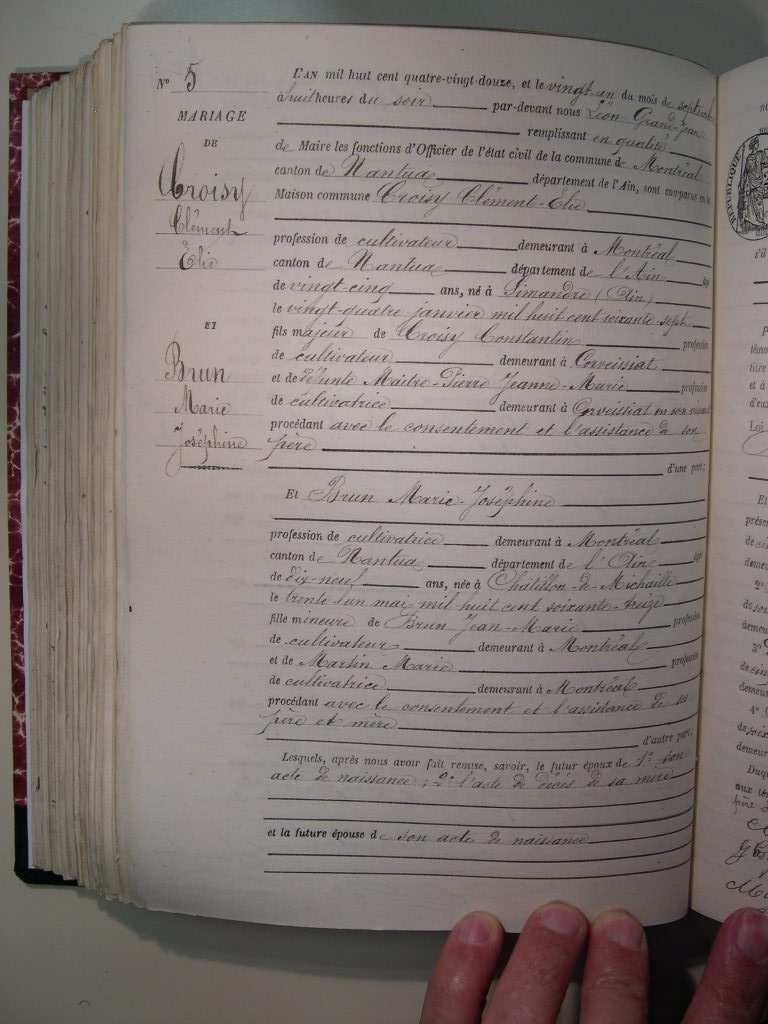 N° 5
MARIAGE
DE
Croisy
Clément
Élie
ET
Brun
Marie
Joséphine
L'AN mil huit cent quatre-vingt-douze, et le vingt-un du mois de septembre
à huit heures du soir par-devant nous Léon Grand-Jean
remplissant en qualité
de Maire les fonctions d'Officier de l'état civil de la commune de Montréal
canton de Nantua département de l'Ain, sont comparus en la
Maison commune Croisy Clément-Élie
profession de cultivateur demeurant à Montréal
canton de Nantua département de l'Ain âgé
de vingt-cinq ans, né à Simandre (Ain)
le vingt-quatre janvier mil huit cent soixante-sept
fils majeur de Croisy Constantin profession
de cultivateur demeurant à Corveissiat
et de défunte Maitre-Pierre Jeanne-Marie profession
de cultivatrice demeurant à Corveissiat en son vivant
procédant avec le consentement et l'assistance de son
père
d'une part;
Et Brun Marie-Joséphine
profession de cultivatrice demeurant à Montréal
canton de Nantua département de l'Ain âgé
de dix-neuf ans, née à Chatillon-de-Michaille
le trente-un mai mil huit cent soixante-treize
fille mineure de Brun Jean-Marie profession
de cultivateur demeurant à Montréal
et de Martin Marie profession
de cultivatrice demeurant à Montréal
procédant avec le consentement et l'assistance de ses
père et mère
d'autre part;
Lesquels, après nous avoir fait remise, savoir, le futur époux de 1° son
acte de naissance; 2° l'acte de décès de sa mère
et la future épouse de son acte de naissance
RÉPUBLIQUE